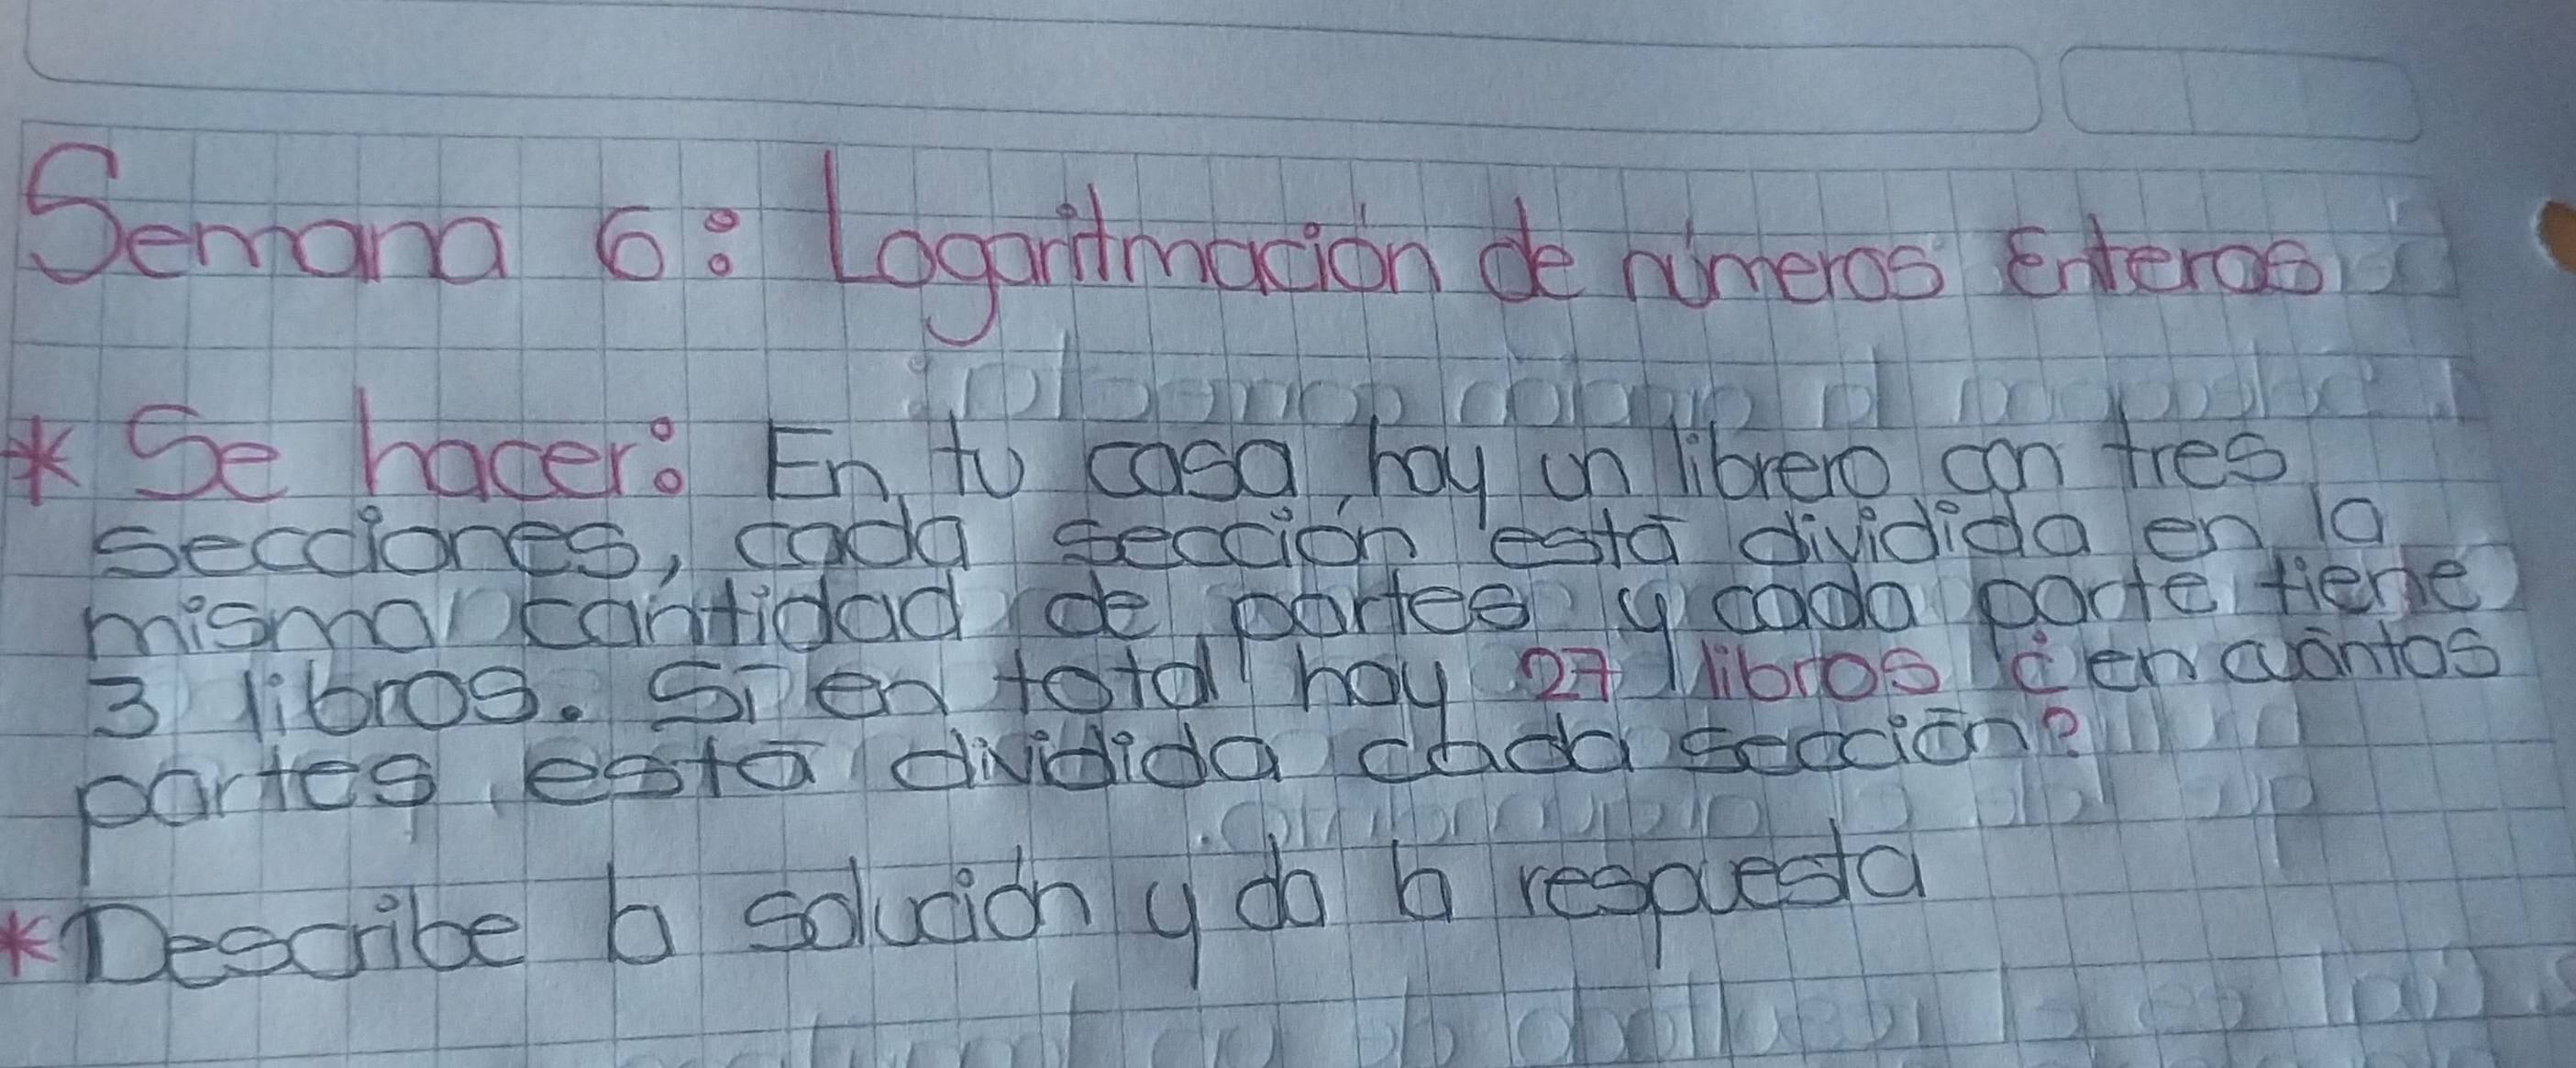 Semana 6: Logaritmación de números Enteros
* Se hacer: En tu casa, hay un librero con tres
secciones, cada sección está dividida en la
misma cantidad de partes y cada parte tiene
3 libros. Si en total hay 27 libros ¿en cuántos
partes está dividida cada sección?
* Describe la solución y da la respuesta